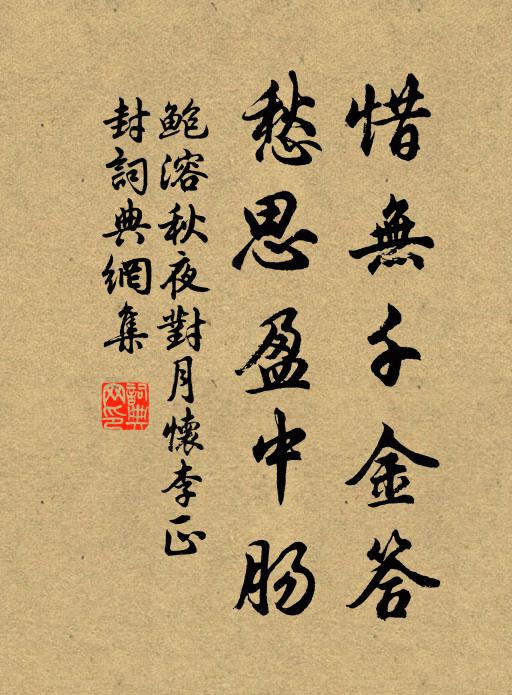 惜無千金答
愁思盈中肠
鲍溶秋夜對月懷李正
封詞典網集
詞典网印